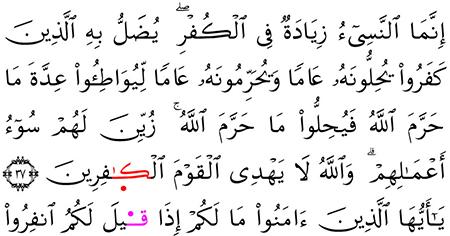 إِنَّمَا ٱلنَّسِىٓءُ زِيَادَةٌ فِى ٱلْكُفْرِ ۖ يُضَلُّ بِهِ ٱلَّذِينَ
كَفَرُوا۟ يُحِلُّونَهُۥ عَامًا وَيُحَرِّمُونَهُۥ عَامًا لِّيُوَاطِـُٔوا۟ عِدَّةَ مَا
حَرَّمَ ٱللَّهُ فَيُحِلُّوا۟ مَا حَرَّمَ ٱللَّهُ ۚ زُيِّنَ لَهُمْ سُوٓءُ
أَعْمَـٰلِهِمْ ۗ وَٱللَّهُ لَا يَهْدِى ٱلْقَوْمَ ٱلْكَـٰفِرِينَ ٣٧
يَـٰٓأَيُّهَا ٱلَّذِينَ ءَامَنُوا۟ مَا لَكُمْ إِذَا قِيلَ لَكُمُ ٱنفِرُوا۟